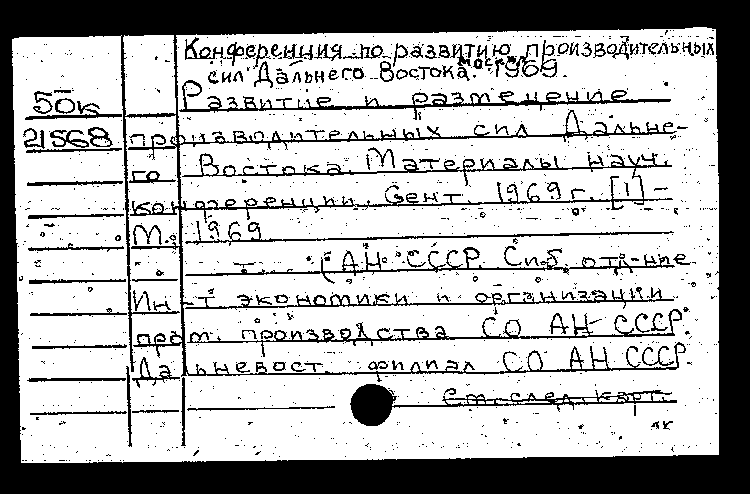 Конференция по развитию производительных
сил Дальнего Востока. Москва. 1969.
50к Развитие и размещение
21568 производительных сил Дальне-
го Востока. Материалы науч.
конференции. Сент. 1969 г. [1] -
М., 1969
(АН СССР. Сиб. отд-ние
Ин-т экономики и организации
пром. производства СО АН СССР.
Дальневост. филиал СО АН СССР.
См. след. карт.